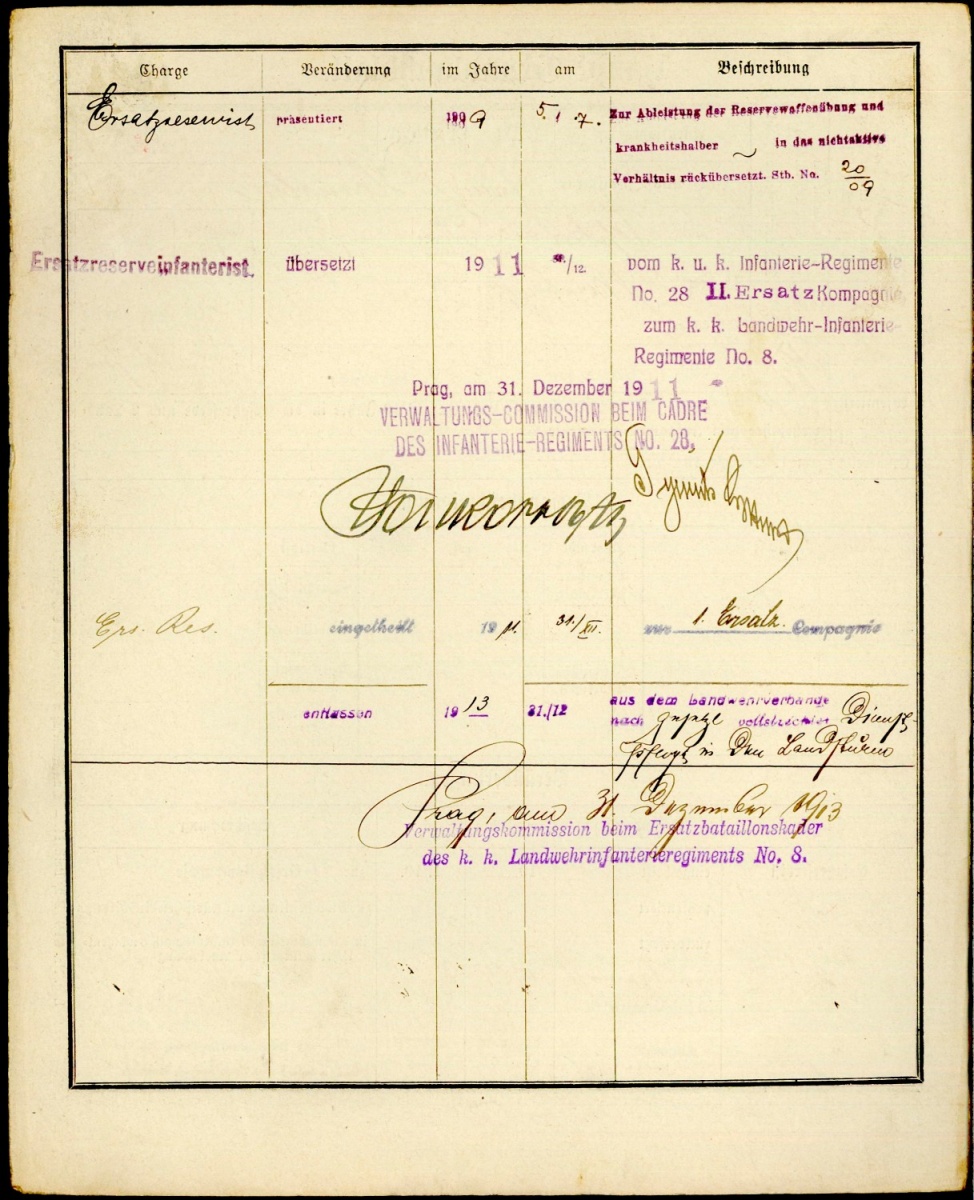 Charge Veränderung im Jahre am Beschreibung
Ersatzreservist präsentiert 1909 5. 1 7. Zur Ableistung der Reservewaffenübung und
krankheitshalber in das nichtaktive
Verhältnis rückübersetzt. Stb. No. 20/09
Ersatzreserveinfanterist. übersetzt 1911 31/12. vom k. u. k. Infanterie-Regimente
No. 28 II. Ersatz Kompagnie
zum k. k. Landwehr-Infanterie-
Regimente No. 8.
Prag, am 31. Dezember 1911
VERWALTUNGS-COMMISSION BEIM CADRE
DES INFANTERIE-REGIMENTS NO. 28.
Ers. Res. eingetheilt 1911. 31./XII. zur 1. Ersatz. Compagnie
entlassen 1913 31./12 aus dem Landwehrverbande
nach gesetzl vollstreckter Dienst-
pflicht in den Landsturm
Prag, am 31. Dezember 1913
Verwaltungskommission beim Ersatzbataillonskader
des k. k. Landwehrinfanterieregiments No. 8.